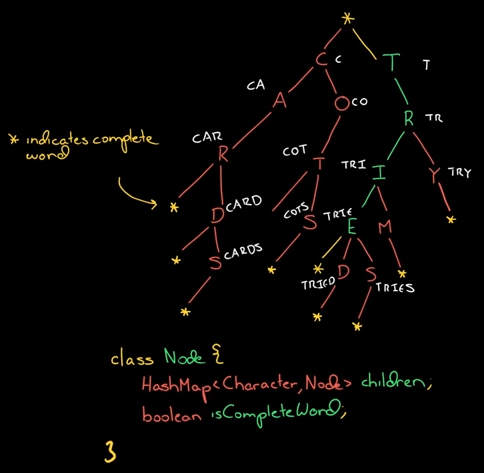 *
C c T T
CA A O CO R TR
* indicates complete
word
CAR R COT T TRI I Y TRY
* D CARD COTS S TRIE E M *
* S CARDS * * D S *
TRIED TRIES
* * *
class Node {
HashMap<Character, Node> children;
boolean isCompleteWord;
}